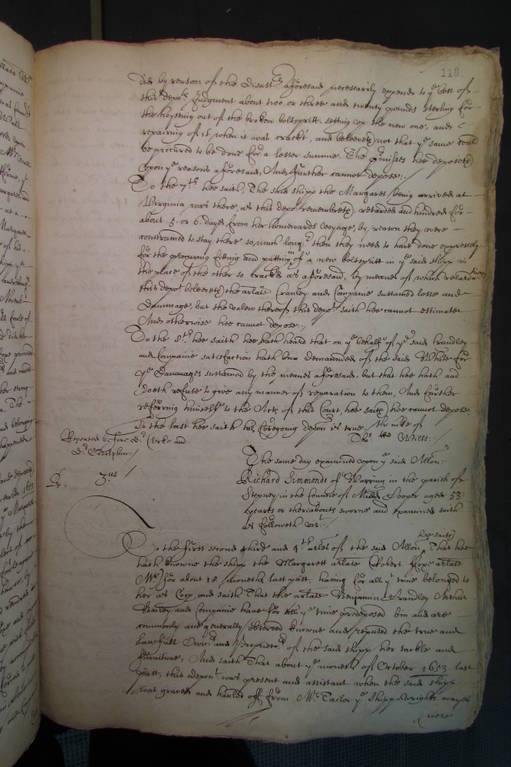 118
and by reason of the disast:r aforesaid necessarily expends to ye best of
this depots Judgment about two or three and twenty pounds sterling for
the hoysting out of the broken boltspritt, setting on the new one, and
repairing of it when it was crackt, and beleeveth not that ye same could
be procured to be done for a lesser summe. The premisses hee deposeth
upon ye reasons aforesaid, And further cannot depose./
To the 7th hee saith, The said shipp the Margarett being arrived at
Virginia was there, as this depot remembreth retarded and hindred for
about 5 or 6 dayes from her homewards voyage, by reason they were
constrained to stay there so much longer then they need to have done expressly
for the procuring fitting and putting in of a new boltspritt in ye said shipp in
the place of the other so crackt as aforesaid, by meanes of which retardation
this depot beleeveth the arlate Crandley and Companie sustained losse and
Dammage, but the value thereof this depot saith hee cannot estimate
And otherwise hee cannot depose.
To the 8th hee saith hee hath heard that on ye behalf of ye said Crandley
and Companie satisfaction hath bin demanded of the said White for
ye Dammages sustained by the meanes aforesaid, but that hee hath and
doeth refuse to give any manner of reparation to them And further
referring himself to the Acts of this Court hee saith hee cannot depose
To the last hee saith his foregoing deposn is true./
Repeated before
The mark of
Tho:
The same day examined upon ye said Allon:
Rp. 3us
Richard Simmonds of Wapping in the parish of
Stepney in the Countie of Midd: Cooper aged 53
yeares or thereabouts sworne and examined saith
as followeth vizt.
To the first second third and 4th arles of the said Allon, That hee
hath knowne the shipp the Margarett arlate Robert arlate
Mr for about 18 moneths last past, having for all ye time belonged to
her as Coop and saith That the arlate Benjamin Crandley Arthur
and Companie have for all ye time predeposed bin and are
commonly and generally reputed the true and
lawfull Owners and Proprietrs of the said shipp her tackle and
furniture, And saith That about ye moneth of October 1653 last
past, this depot was present and assistant when the said shipp
was graved and hauled off from Mr Taylor ye Shipp wrights